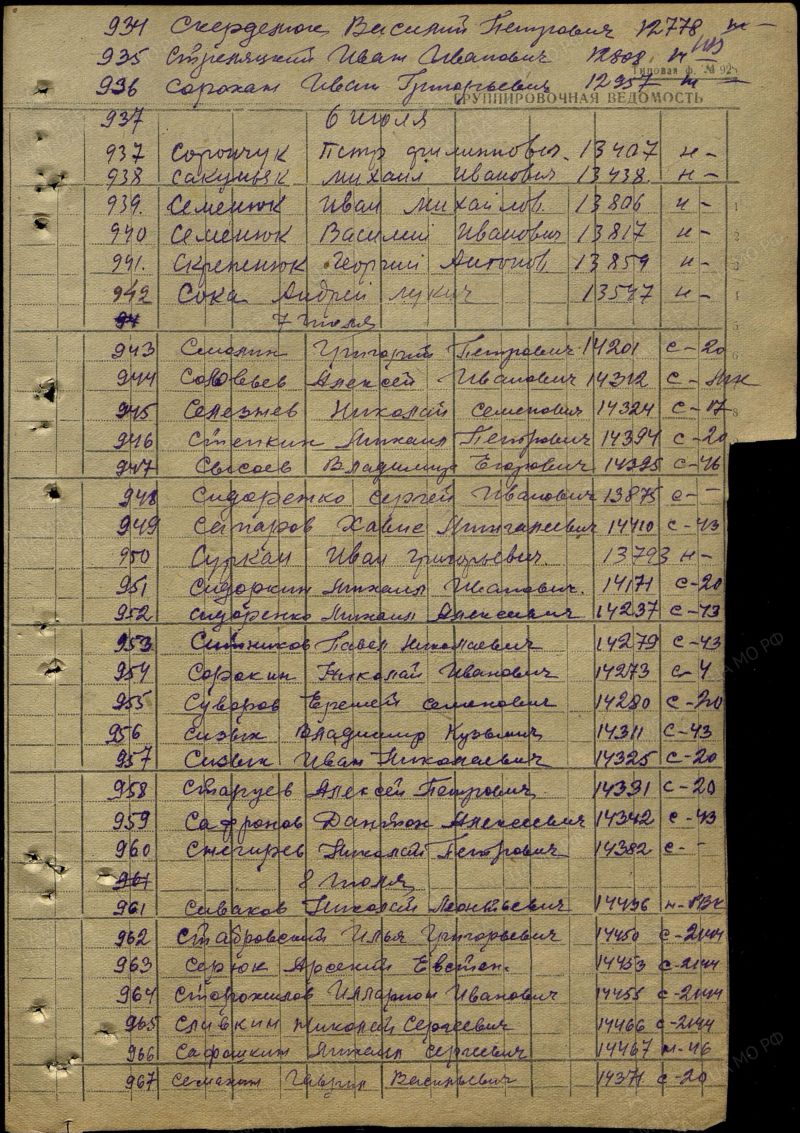 934 Скерденюк Василий Петрович 12778 н -
935 Стреляцкий Иван Иванович 12808 н
Типовая ф. № 92
936 Сорохан Иван Григорьевич 12957 н -
ГРУППИРОВОЧНАЯ ВЕДОМОСТЬ
937 6 июля
937 Сорончук Петр Филиппович. 13407 н -
938 Сакуняк Михаил Иванович 13438 н -
939. Семенюк Иван Михайлов. 13806 н -
940 Семенюк Василий Иванович 13817 н -
941. Скрепенюк Георгий Антонов. 13859 н -
942 Сока Андрей Лукич 13547 н -
94 7 июля
943 Смолин Григорий Петрович 14201 с - 20
944 Соловьев Алексей Иванович 14312 с -
945 Селезнев Николай Семенович 14324 с - 17
946 Степкин Михаил Петрович 14394 с - 20
947 Сысоев Владимир Егорович 14395 с - 46
948 Сидоренко Сергей Иванович 13875 с - -
949 Сапаров Хавис Мингареевич 14410 с - 43
950 Суркан Иван Григорьевич. 13793 н -
951 Сидоркин Михаил Иванович. 14171 с - 20
952 Сидоренко Михаил Алексеевич 14237 с - 43
953 Ситников Павел Николаевич 14279 с - 43
954 Сорокин Николай Иванович 14273 с - 4
955 Суворов Еремей Семенович 14280 с - 20
956 Сизых Владимир Кузьмич 14311 с - 43
957 Сизых Иван Николаевич 14325 с - 20
958 Старуев Алексей Петрович. 14331 с - 20
959 Сафронов Алексеевич 14342 с - 43
960 Снегирев Николай Петрович 14382 с - -
961 8 июля
961 Сиваков Николай Леонтьевич 14436 н -
962 Стабровский Илья Григорьевич 14450 с - 2144
963 Серюк Арсений Евстен. 14453 с - 2144
964 Сторожилов Илларион Иванович 14455 с - 2144
965 Сливкин Николай Сергеевич 14466 с - 2144
966 Сафошкин Михаил Сергеевич 14467 н - 46
967 Семахин Гаврил Васильевич 14371 с - 20